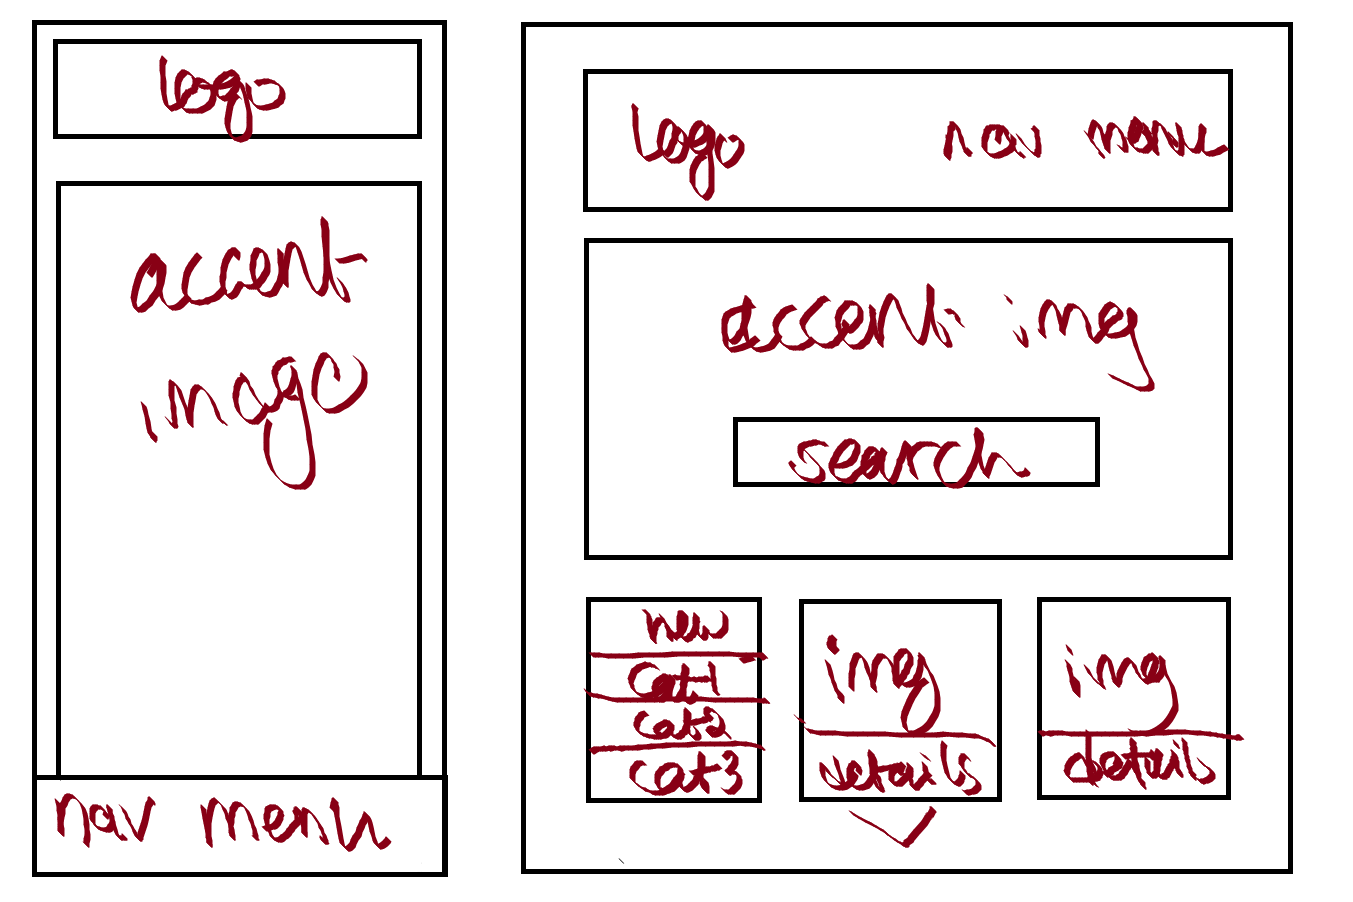 logo
accent
image
nav menu
logo nav menu
accent img
search
new
cat1
cat2
cat3
img
details
img
details